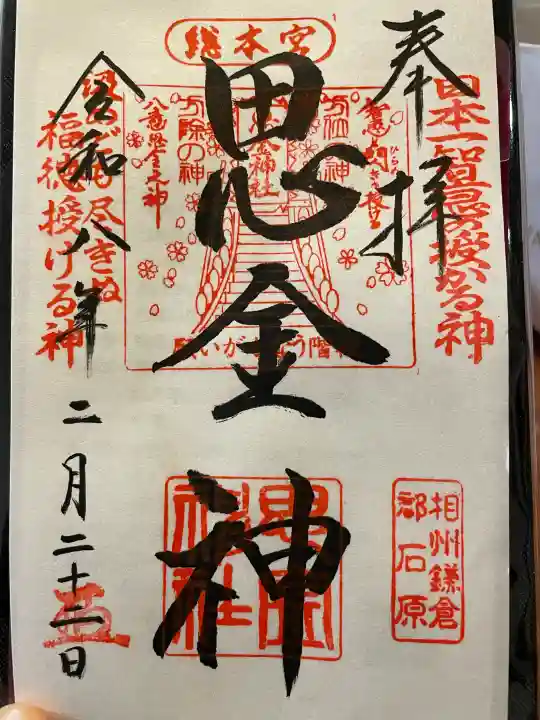 奉拝
日本一智恵の授かる神
総本宮
思金神
神社
八意思金之神
願いがかなう階段
福徳授ける神
令和八年二月二十二日
相州鎌倉
郡石原
思金
神社